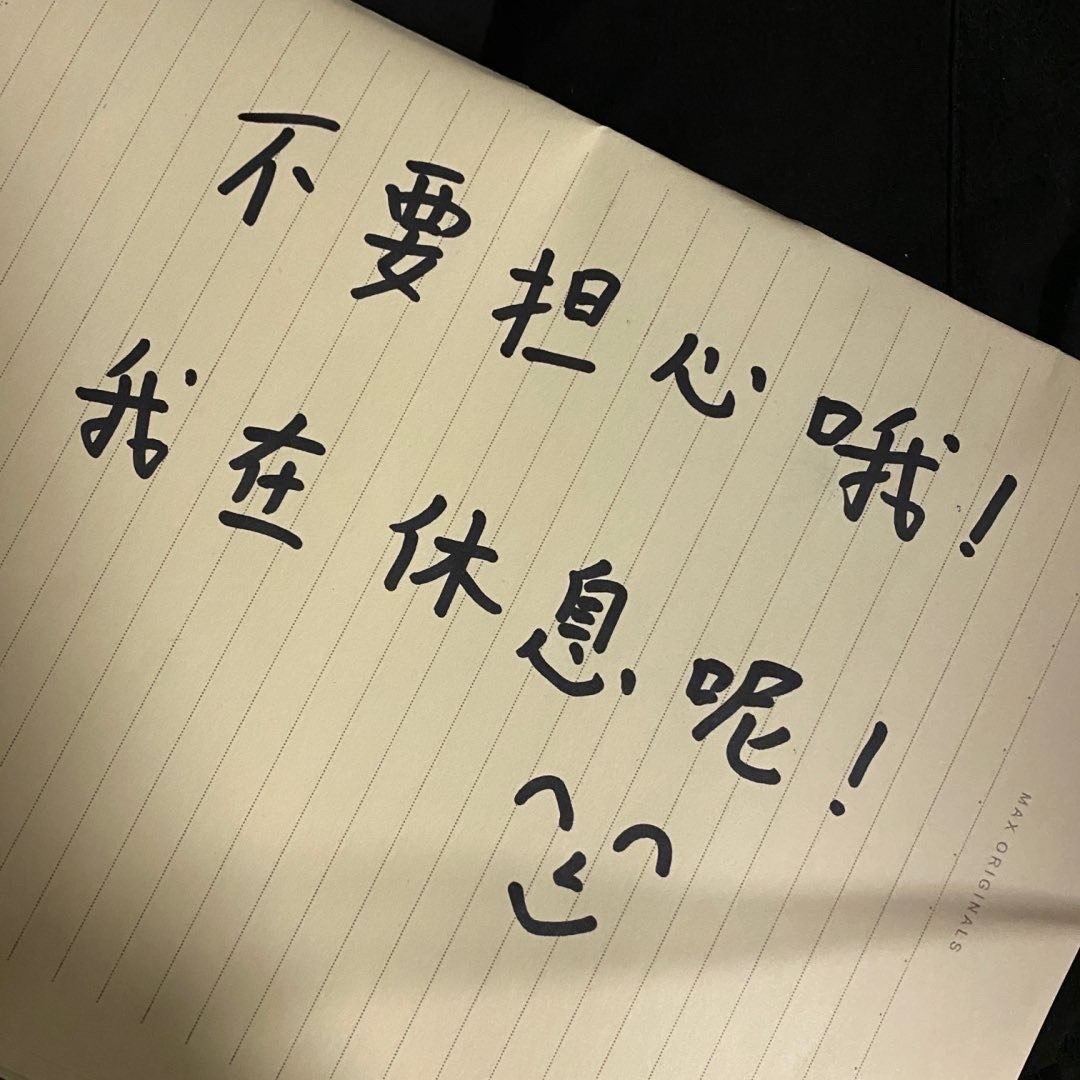 不要担心哦！
我在休息呢！
MAX ORIGINALS